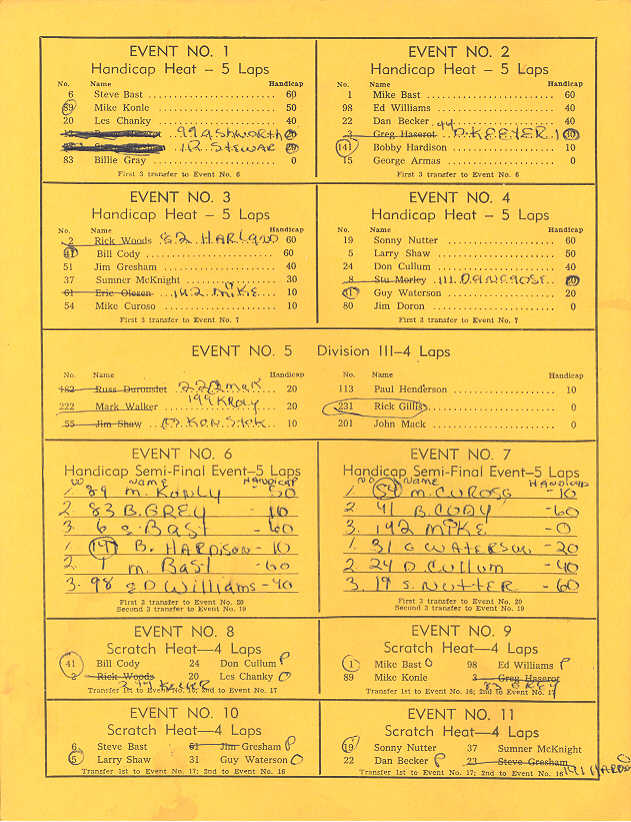 EVENT NO. 1
Handicap Heat – 5 Laps
No. Name Handicap
6 Steve Bast 60
89 Mike Konle 50
20 Les Chanky 40
99 ASHWORTH 20
1 R. STEWAR 20
83 Billie Gray 0
First 3 transfer to Event No. 6
EVENT NO. 2
Handicap Heat – 5 Laps
No. Name Handicap
1 Mike Bast 60
98 Ed Williams 40
22 Dan Becker 40
3 Greg Haserot 44 D. KEETER 10
141 Bobby Hardison 10
15 George Armas 0
First 3 transfer to Event No. 6
EVENT NO. 3
Handicap Heat – 5 Laps
No. Name Handicap
2 Rick Woods 82 HARLAND 60
41 Bill Cody 60
51 Jim Gresham 40
37 Sumner McKnight 30
61 Eric Olesen 142 MIKE 10
54 Mike Curoso 10
First 3 transfer to Event No. 7
EVENT NO. 4
Handicap Heat – 5 Laps
No. Name Handicap
19 Sonny Nutter 60
5 Larry Shaw 50
24 Don Cullum 40
8 Stu Morley 111 20
31 Guy Waterson 20
80 Jim Doron 0
First 3 transfer to Event No. 7
EVENT NO. 5 Division III—4 Laps
No. Name Handicap
182 Russ Duromdet 20
222 Mark Walker 199 KROY 20
55 Jim Shaw 10
No. Name Handicap
113 Paul Henderson 10
231 Rick Gillis 0
201 John Mack 0
EVENT NO. 6
Handicap Semi-Final Event—5 Laps
NO NAME HANDICAP
1. 89 M. KONLY 50
2. 83 B. GREY - 10
3. 6 S. BAST - 60
1. 141 B. HARDISON - 10
2. 1 M. BAST - 60
3. 98 ED WILLIAMS - 40
First 3 transfer to Event No. 20
Second 3 transfer to Event No. 19
EVENT NO. 7
Handicap Semi-Final Event—5 Laps
NO NAME HANDICAP
1. 54 M. CUROSO - 10
2. 41 B. CODY - 60
3. 142 MIKE - 0
1. 31 G WATERSON - 20
2. 24 D CULLUM - 40
3. 19 S. NUTTER - 60
First 3 transfer to Event No. 20
Second 3 transfer to Event No. 19
EVENT NO. 8
Scratch Heat—4 Laps
41 Bill Cody 24 Don Cullum P
2 Rick Woods 20 Les Chanky O
44 KEETER
Transfer 1st to Event No. 16; 2nd to Event No. 17
EVENT NO. 9
Scratch Heat—4 Laps
1 Mike Bast O 98 Ed Williams P
89 Mike Konle 3 Greg Haserot
83 GREY
Transfer 1st to Event No. 16; 2nd to Event No. 17
EVENT NO. 10
Scratch Heat—4 Laps
6 Steve Bast 61 Jim Gresham P
5 Larry Shaw 31 Guy Waterson O
Transfer 1st to Event No. 17; 2nd to Event No. 16
EVENT NO. 11
Scratch Heat—4 Laps
19 Sonny Nutter 37 Sumner McKnight
22 Dan Becker P 23 Steve Gresham O
Transfer 1st to Event No. 17; 2nd to Event No. 16 141 HARDI